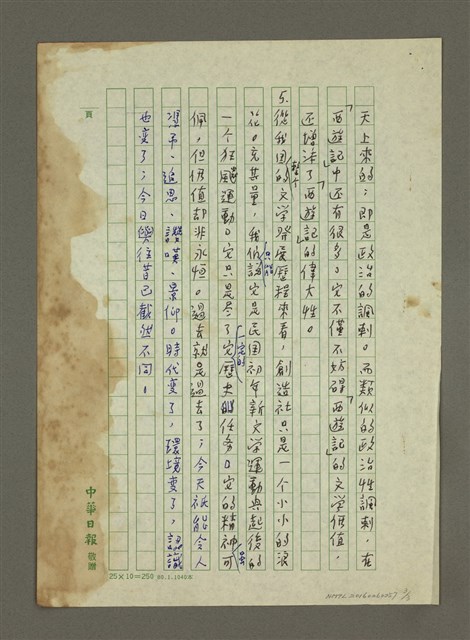 天上來的；即是政治的諷刺。而類似的政治性諷刺，在
「西遊記」中还有很多。它不僅不妨碍「西遊記」的文学價值，
还增添了整个「西遊記」的偉大性。
5. 從我国的文学發展歷程來看，創造社只是一个小小的浪
花。充其量，我們只能說它是民国初年新文学運動興起後的
一个狂飈運動。它只是尽了它歷史上它的任务。它的精神可
佩，但價值却非永恒。過去就是過去了；今天祇能令人
憑弔、追思、讚嘆、景仰。時代变了，環境变了，認識
也变了；今日與往昔已截然不同。
頁
中華日報 敬贈
25×10=250